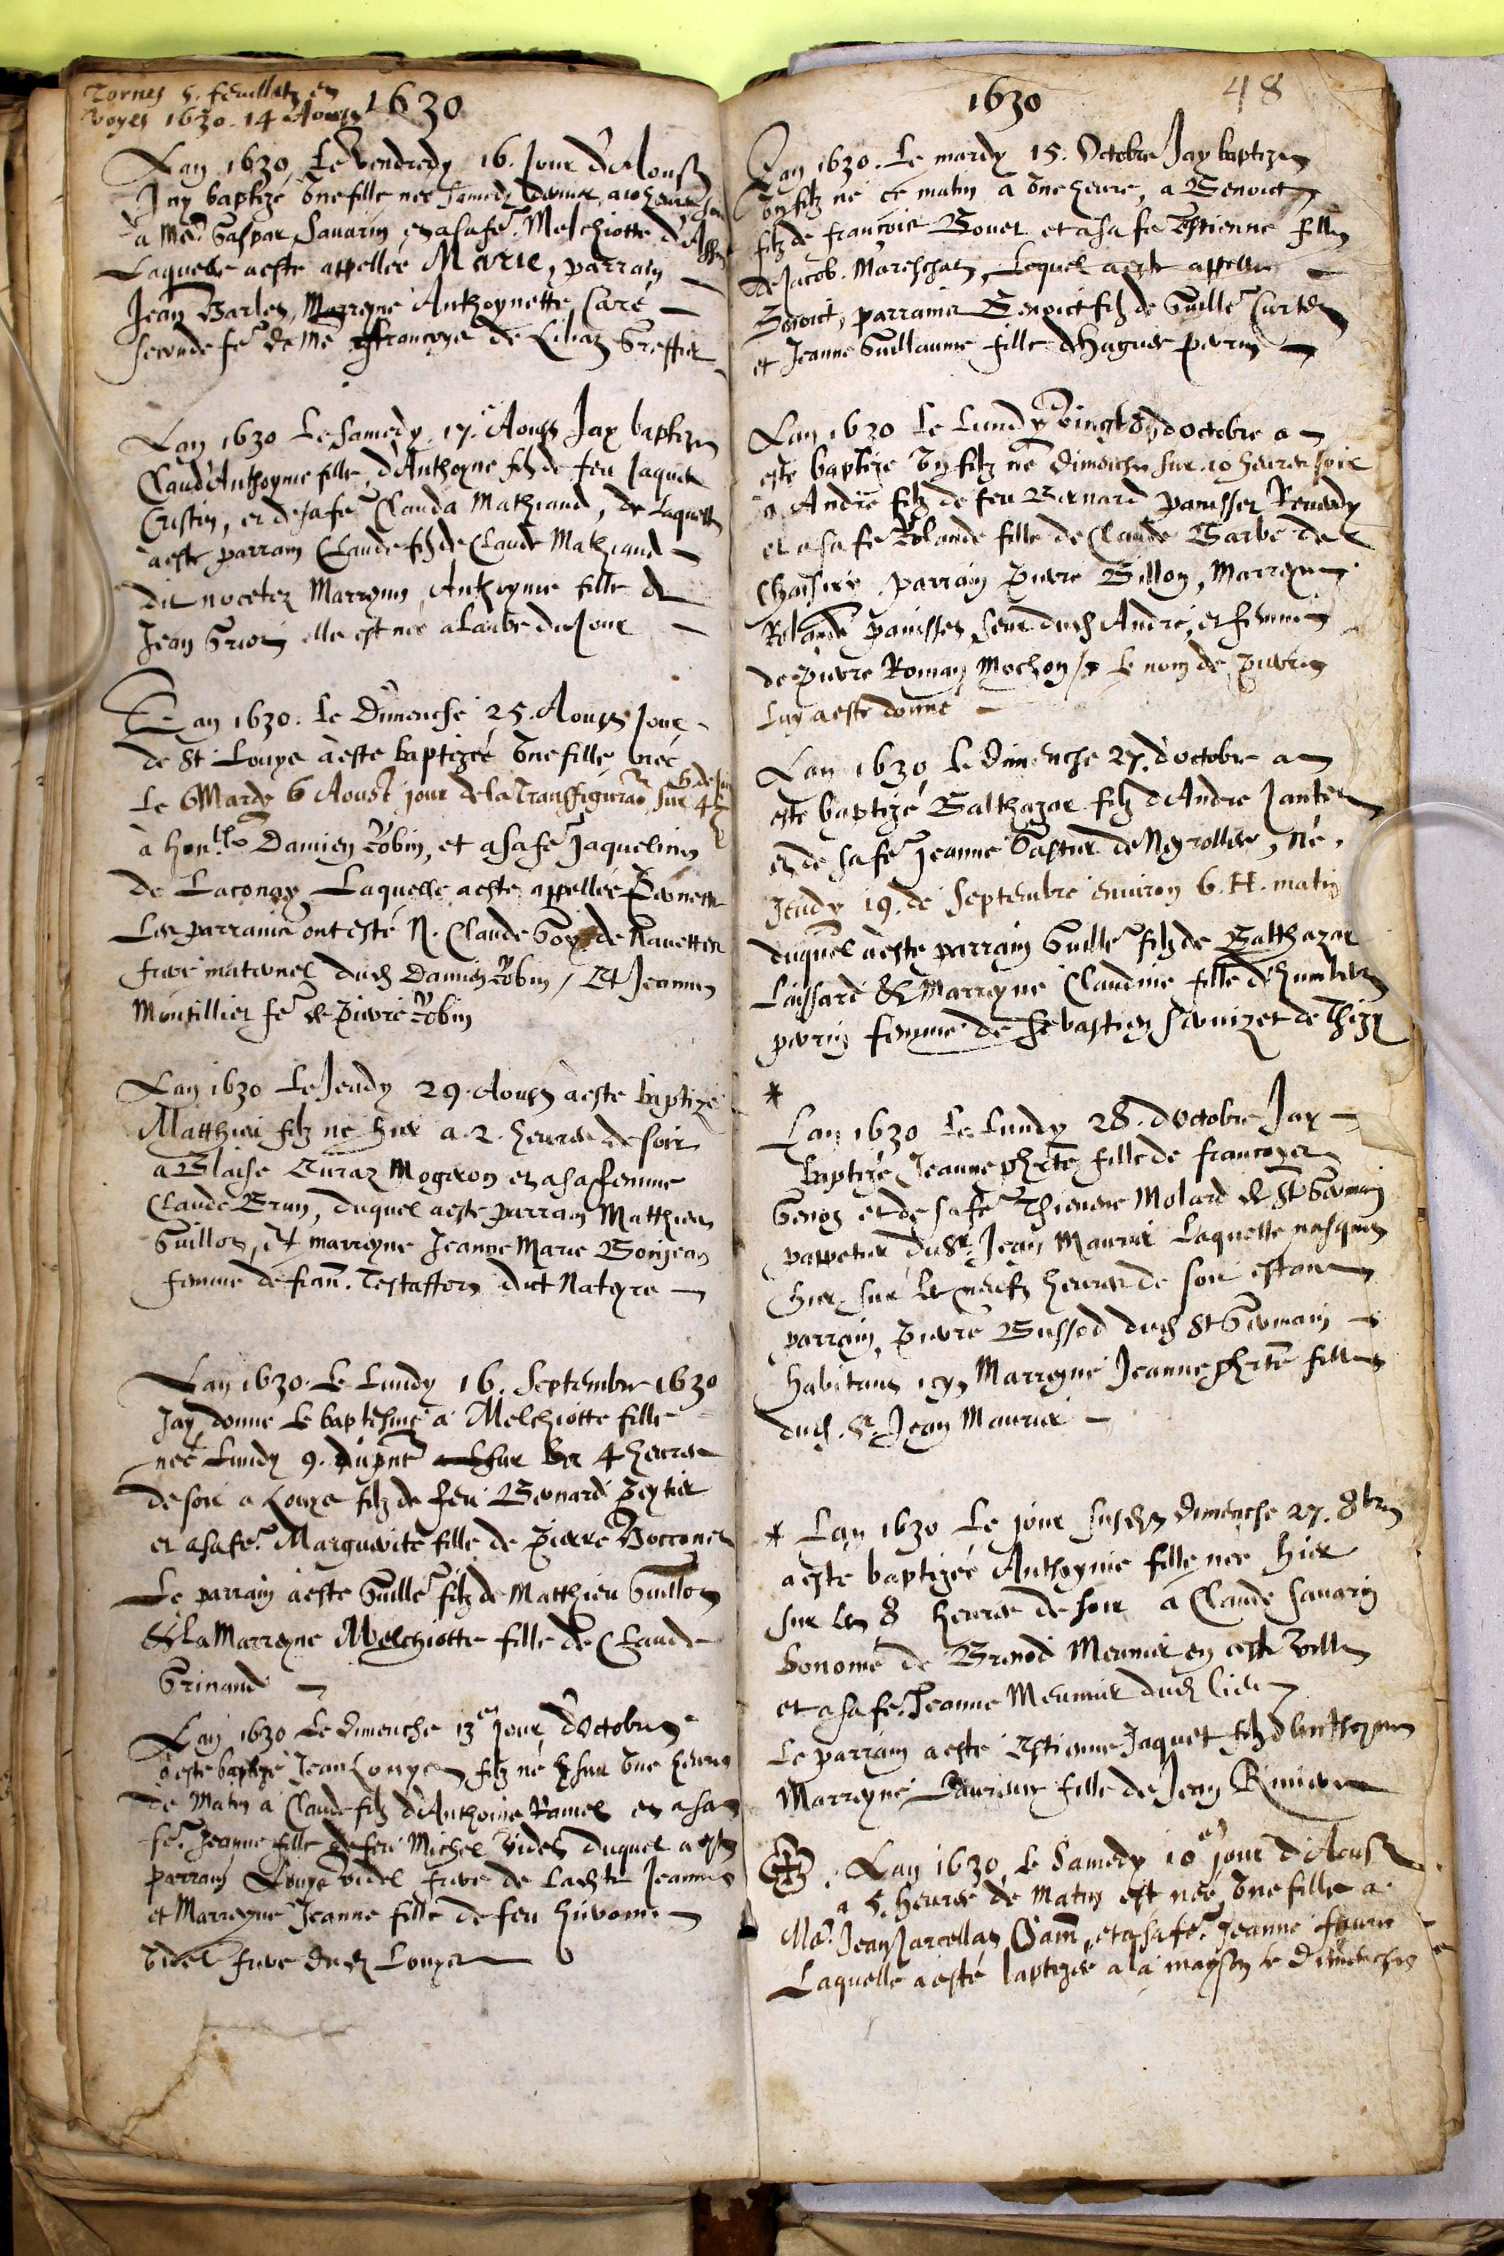 Tornes 5. feuillets en
voyes 1630. 14 Aoust
1630
Lan 1630, Le vendredy 16. Jour d'Aoust
Jay baptizé une fille nee samedy dernier, a 10 heures
a Me. Gaspar Savarin, et a sa fe. Melchiotte
Laquelle a este appellee Marie, parrain
Jean Barlet, Marreyne Anthoynette Caré
seconde fe. de Me ffrancoys de Liliaz Greffier
Lan 1630 Le Samedy 17. Aoust Jay baptizé
Claud'Anthoynie fille d'Anthoyne filz de feu Jaques
Cristin, et de sa fe Clauda Mathiand, de Laquelle
a este parrain Claude filz de Claude Mathiand
dit nocetez Marreyne, Anthoynie fille de
Jean Griot elle est nee a Laube du Jour
Lan 1630. Le Dimenche 25. Aoust Jour
de St Louys a este baptizée une fille née
Le Mardy 6 Aoust jour de la Transfiguraon, sur 4
à honble Damien Robin, et a sa fe Jaqueline
de Laconay Laquelle a este appellée Pernette
Les parrains ont esté N. Claude Goy de Navettes
frere maternel dud Damien Robin / Et Jeanne
Montillier fe de Pierre Robin
Lan 1630 Le Jeudy 29. Aoust a este baptizé
Matthieu filz né hier a 2. heures de soir
a Blaise Curaz Mogeron et a sa femme
Claude Brun, duquel a este parrain Matthieu
Guillot, Et marreyne Jeanne Marie Bonjean
femme de fran. Testaffort dict Nateyre
Lan 1630. Le Lundy 16. Septembre 1630
Jay donne Le baptesme a Melchiotte fille
née Lundy 9. dupnt sur les 4 heures
de soir a Louys filz de feu Bernard Peytier
et a sa fe. Marguerite fille de Pierre Bocconet
Le parrain a este Guille filz de Matthieu Guillot
& La Marreyne Melchiotte fille de Claude
Grinand
Lan 1630 Le dimenche 13e jour d'Octobre
a este baptizé Jean Louys filz né sur une heure
de matin a Claude filz d'Anthoine Ramel et a sa
fe. Jeanne fille de feu Michel Videl duquel a este
parrain Louys Videl frere de Ladite Jeanne
et Marreyne Jeanne fille de feu
Videl frere dud Louys
1630
48
Lan 1630. Le mardy 15. Octobre Jay baptizé
un filz né ce matin a une heure, a Benoict
filz de françois Bouet et a sa fe Estienne fille
de Jacob Mareschal, Lequel a este appellé
Benoict, parrains Benoict filz de Guille Curtet
et Jeanne Guillaume fille d'Hugues Perrin
Lan 1630 Le Lundy vingt d'octobre a
este baptizé un filz né dimenche sur 10 heures soir
a André filz de feu Bernard Panisset Reverdy
et a sa fe Rolande fille de Claude Barbe de
parrain Pierre Billon, Marreyne
Rolande Panisset seur dud André, et femme
de Pierre Roman Mochon / Le nom de Pierre
Luy a este donné
Lan 1630 Le dimenche 27. d'octobre a
este baptizé Balthazar filz d'Andre Jantet
et de sa fe Jeanne Gastier de Neyrolles, né
Jeudy 19. de Septembre environ 6. H. matin
duquel a este parrain Guille filz de Balthazar
Laissard & Marreyne Claudine fille d'Humbert
perrin femme de Sebastien de Thizy
* Lan 1630 Le Lundy 28. d'octobre Jay
baptizé Jeannephrte fille de francoys
Genod et de sa fe Thievene Molard de St Germain
pappetier du Sr. Jean Maurier Laquelle nasquit
hier sur les neufz heures de soir estant
parrain, Pierre Bussod dud St Germain
habitant icy, Marreyne Jeannephrte fille
dud. Sr. Jean Maurier
* Lan 1630 Le jour susdit dimenche 27. 8bre
a este baptizée Anthoynie fille nee hier
sur les 8 heures de soir a Claude Savarin
bonome de Brenod Meunier en ceste ville
et a sa fe. Jeanne Meunier dud lieu
Le parrain a este Estienne Jaquet filz d'Anthoyne
Marreyne fille de Jean
Lan 1630 Le Samedy 10e jour d'Aoust
a 5. heures de matin est née une fille a
Me. Jean Jarcellat et a sa fe. Jeanne
Laquelle a esté baptizee a la mayson le Dimenche